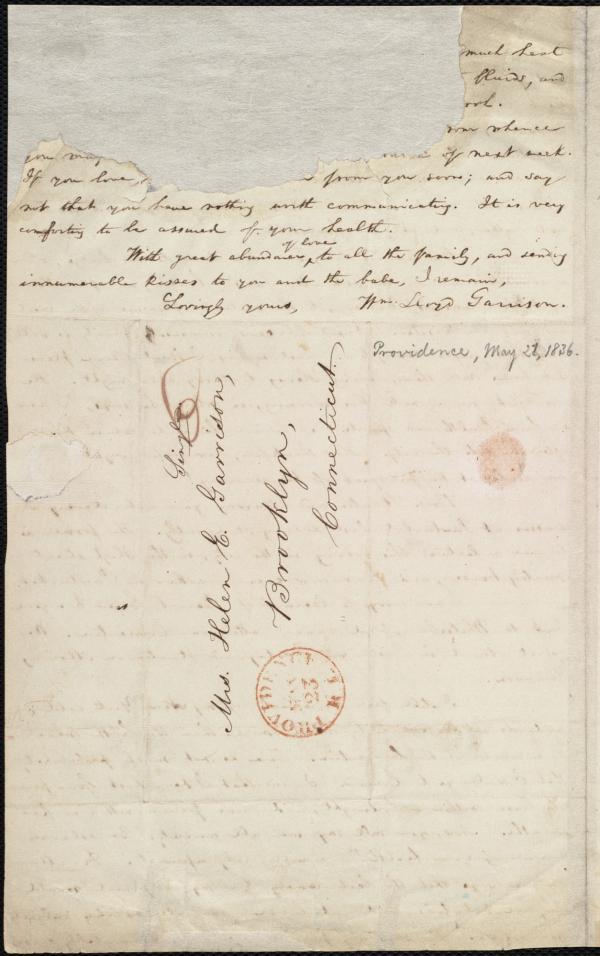 much heat
fluids, and
ool.
whence
you may of next week.
If you love, from you soon; and say
not that you have nothing worth communicating. It is very
comforting to be assured of your health.
With great abundance of love to all the family, and sending
innumerable kisses to you and the babe, I remain,
Lovingly yours, Wm. Lloyd Garrison.
Providence, May 21, 1836.
Single
6
Mrs. Helen E. Garrison,
Brooklyn,
Connecticut.
PROVIDENCE R.I.
MAY
23